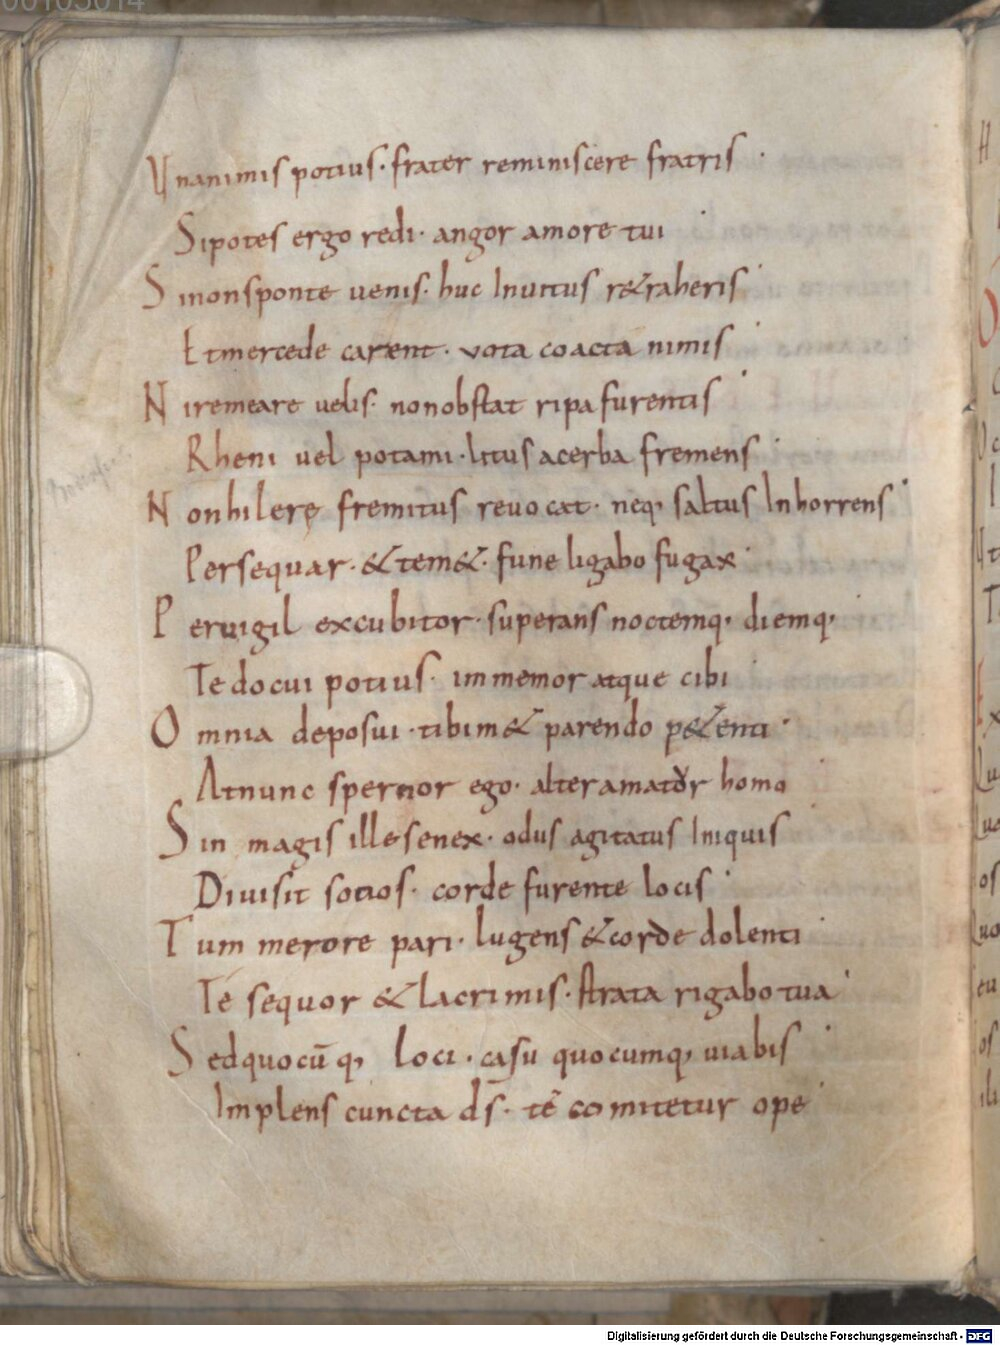 00103014
Unanimis potius · frater reminiscere fratris ·
Sipotes ergo redi · angor amore tui
Sinonsponte uenis · huc Inuitus r&raheris
Etmercede carent · vota coacta nimis
Niremeare uelis · nonobstat ripa furentis
Rheni uel potami · litus acerba fremens
Nonhilere fremitus reuocat · neq, saltus Inhorrens
Persequar · &tem& · fune ligabo fugax
Peruigil excubitor · superans noctemq, diemq,
Te docui potius · immemor atque cibi
Omnia deposui · tibim& parendo p&enti ·
Atnunc spernor ego · alter amator homo
Sin magis ille senex · odus agitatus Iniquis
Diuisit sotios · corde furente locis
Tum merore pari · lugens &corde dolenti
Te sequor & lacrimis · strata rigabo tua
Sedquocū q, loci · casu quocumq, uiabis
Implens cuncta ds̄ · te comitetur ope
Digitalisierung gefördert durch die Deutsche Forschungsgemeinschaft - DFG